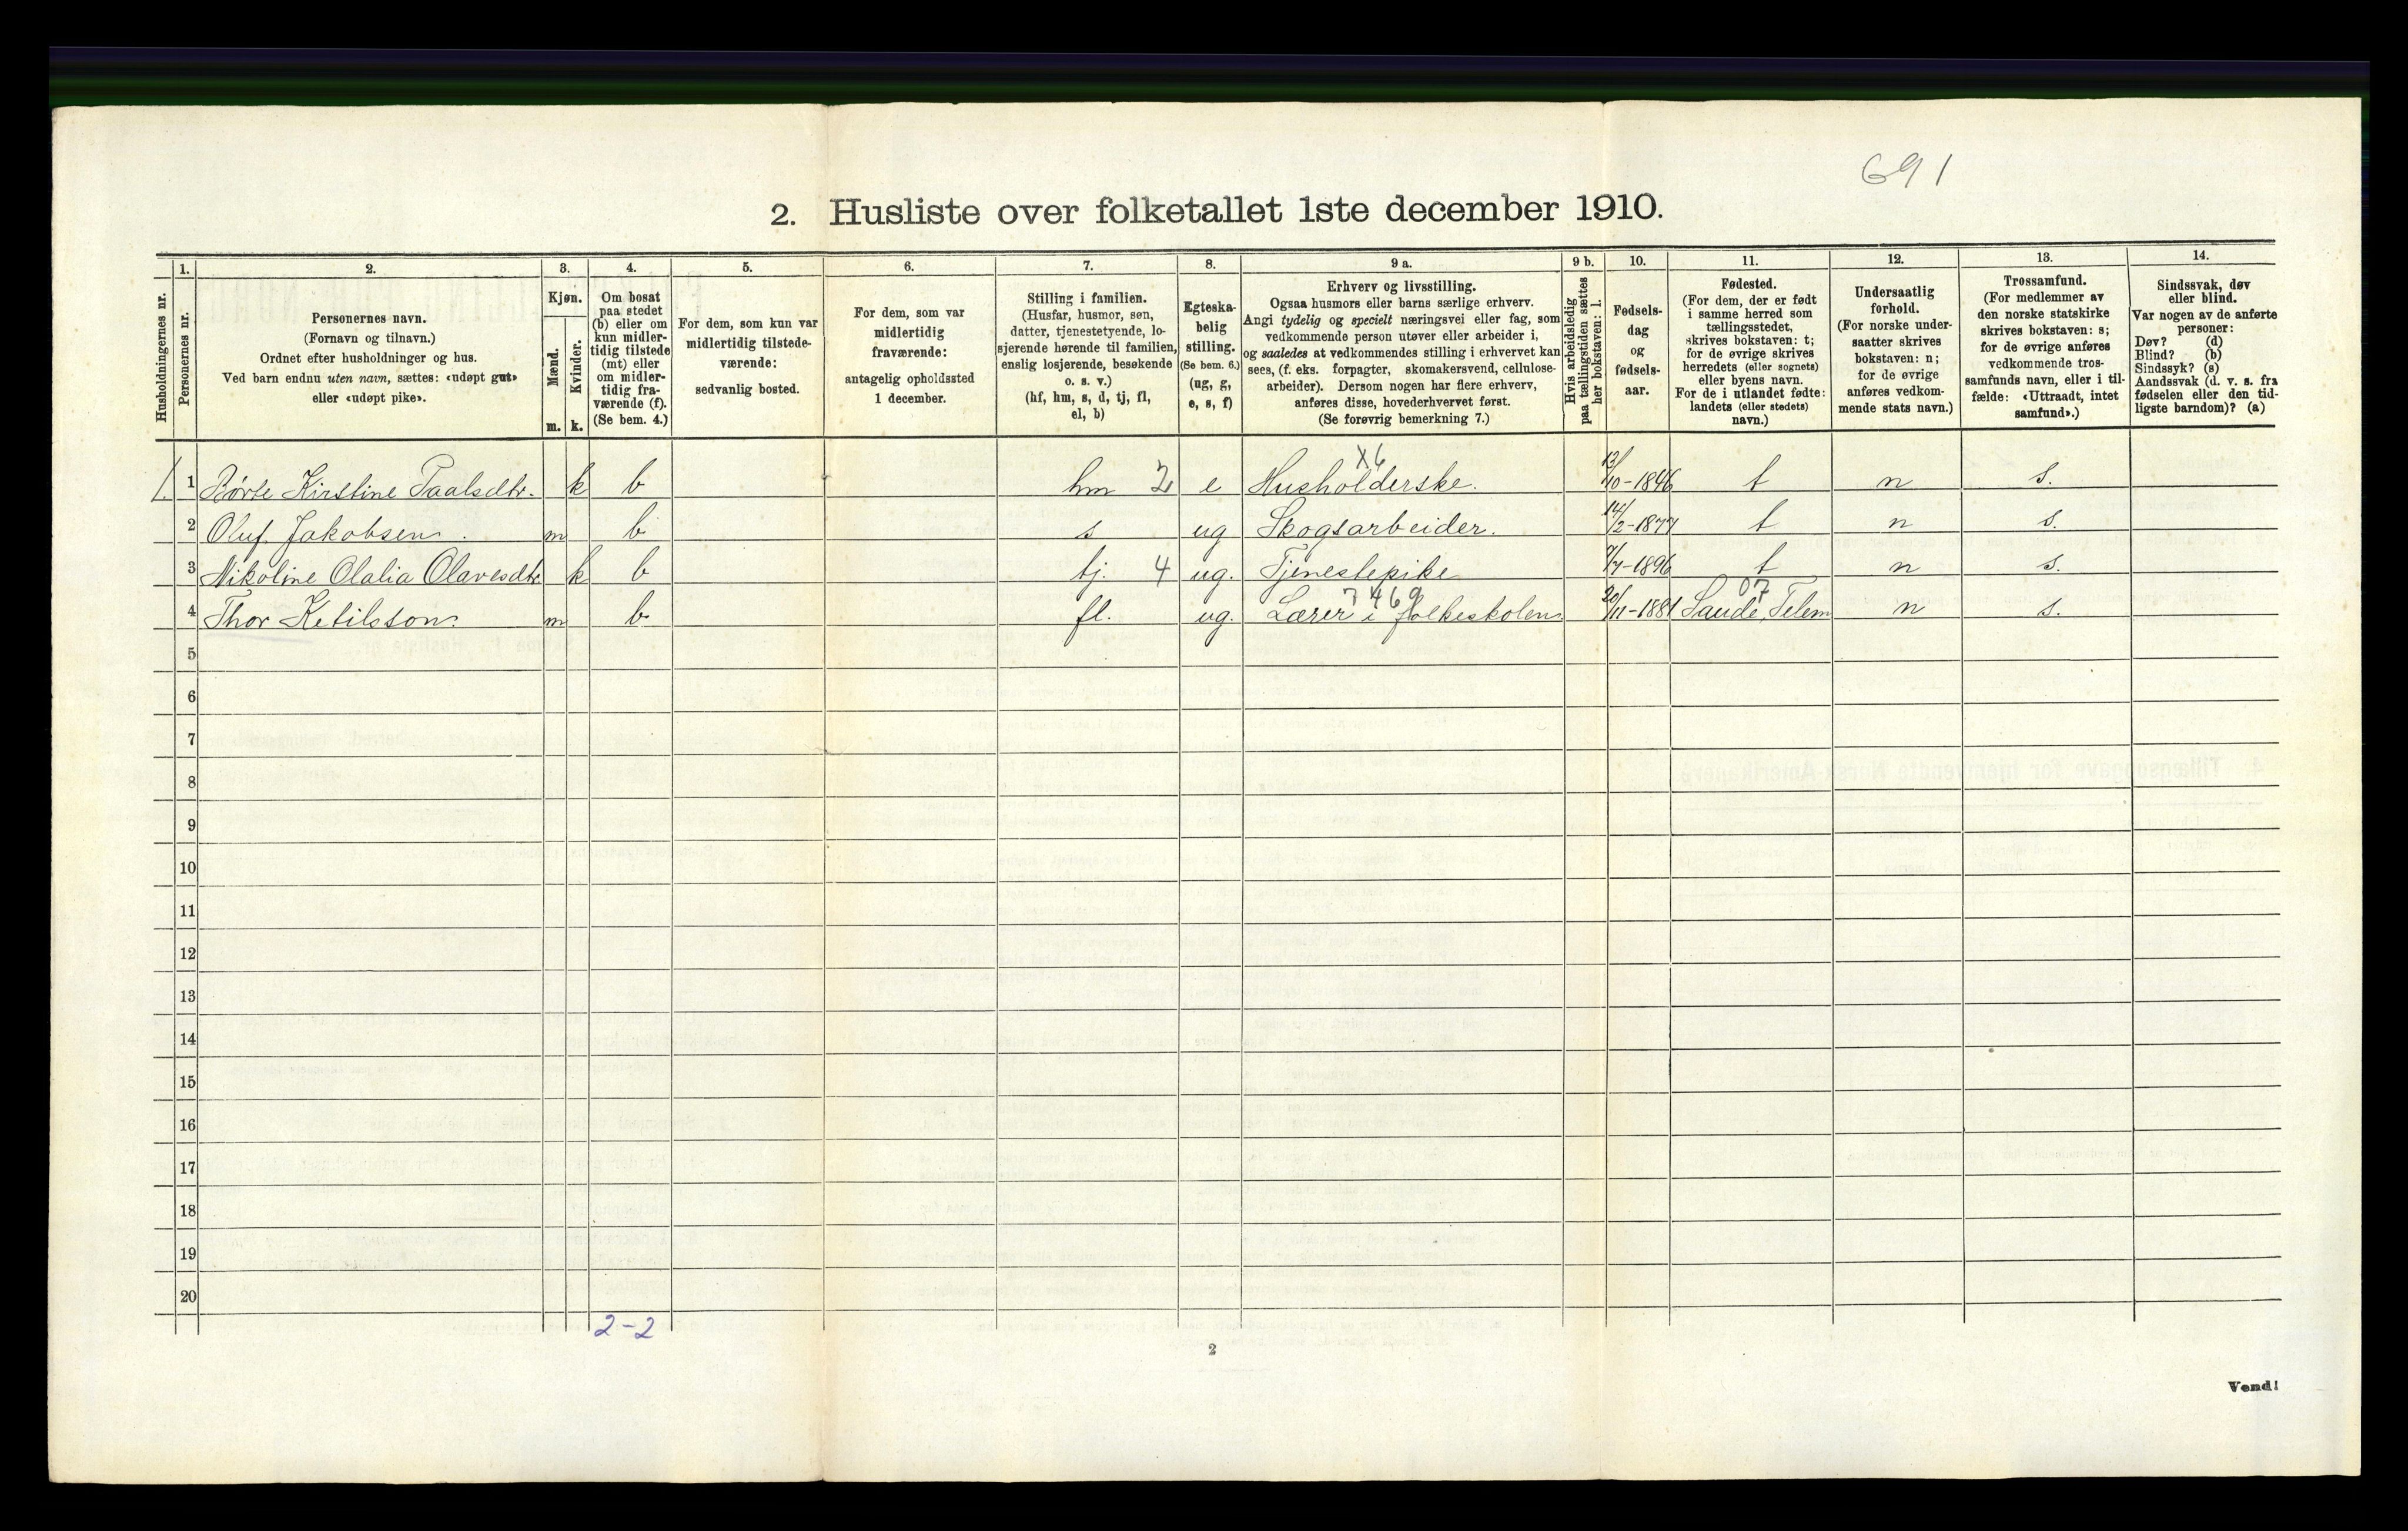 691
2. Husliste over folketallet 1ste december 1910.
Husholdningernes nr.
1.
Personernes nr.
2.
Personernes navn.
(Fornavn og tilnavn.)
Ordnet efter husholdninger og hus.
Ved barn endnu uten navn, sættes: «udøpt gut»
eller «udøpt pike».
3.
Kjøn.
Mænd.
Kvinder.
m. k.
4.
Om bosat
paa stedet
(b) eller om
kun midler-
tidig tilstede
(mt) eller
om midler-
tidig fra-
værende (f).
(Se bem. 4.)
5.
For dem, som kun var
midlertidig tilstede-
værende:
sedvanlig bosted.
6.
For dem, som var
midlertidig
fraværende:
antagelig opholdssted
1 december.
7.
Stilling i familien.
(Husfar, husmor, søn,
datter, tjenestetyende, lo-
sjerende hørende til familien,
enslig losjerende, besøkende
o. s. v.)
(hf, hm, s, d, tj, fl,
el, b)
8.
Egteska-
belig
stilling.
(Se bem. 6.)
(ug, g,
e, s, f)
9 a.
Erhverv og livsstilling.
Ogsaa husmors eller barns særlige erhverv.
Angi tydelig og specielt næringsvei eller fag, som
vedkommende person utøver eller arbeider i,
og saaledes at vedkommendes stilling i erhvervet kan
sees, (f. eks. forpagter, skomakersvend, cellulose-
arbeider). Dersom nogen har flere erhverv,
anføres disse, hovederhvervet først.
(Se forøvrig bemerkning 7.)
9 b.
Hvis arbeidsledig
paa tællingstiden sættes
her bokstaven: l.
10.
Fødsels-
dag
og
fødsels-
aar.
11.
Fødested.
(For dem, der er født
i samme herred som
tællingsstedet,
skrives bokstaven: t;
for de øvrige skrives
herredets (eller sognets)
eller byens navn.
For de i utlandet fødte:
landets (eller stedets)
navn.)
12.
Undersaatlig
forhold.
(For norske under-
saatter skrives
bokstaven: n;
for de øvrige
anføres vedkom-
mende stats navn.)
13.
Trossamfund.
(For medlemmer av
den norske statskirke
skrives bokstaven: s;
for de øvrige anføres
vedkommende tros-
samfunds navn, eller i til-
fælde: «Uttraadt, intet
samfund».)
14.
Sindssvak, døv
eller blind.
Var nogen av de anførte
personer:
Døv? (d)
Blind? (b)
Sindssyk? (s)
Aandssvak (d. v. s. fra
fødselen eller den tid-
ligste barndom)? (a)
X6
1. 1 Børte Kirstine Paalsdtr. k b hm 2 e Husholderske. 13/10-1846 t n s.
2 Oluf Jakobsen. m b s ug Skogsarbeider. 14/2-1877 t n s.
3 Nikoline Olalia Olavesdtr. k b tj. 4 ug. Tjenestepike 7/7-1896 t n s.
7469 07
4 Thor Ketilsson. m b fl. ug. Lærer i folkeskolen 20/11-1881 Saude, Telem n s.
5
6
7
8
9
10
11
12
13
14
15
16
17
18
19
20
2-2
2
Vend!